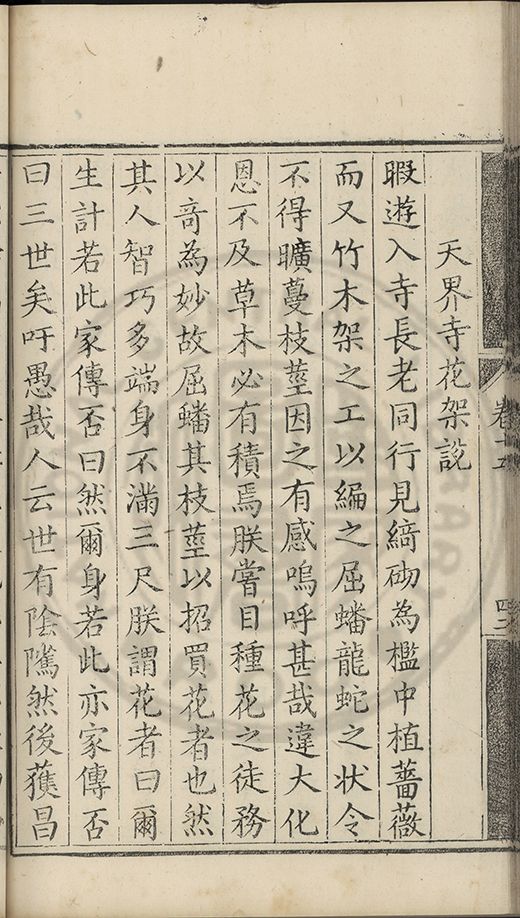 天界寺花架說
暇遊入寺長老同行見綺砌為檻中植薔薇
而又竹木架之工以編之屈蟠龍蛇之狀令
不得曠蔓枝莖因之有感嗚呼甚哉違大化
恩不及草木必有積焉朕嘗目種花之徒務
以奇為妙故屈蟠其枝莖以招買花者也然
其人智巧多端身不滿三尺朕謂花者曰爾
生計若此家傳否曰然爾身若此亦家傳否
曰三世矣吁愚哉人云世有陰隲然後獲昌